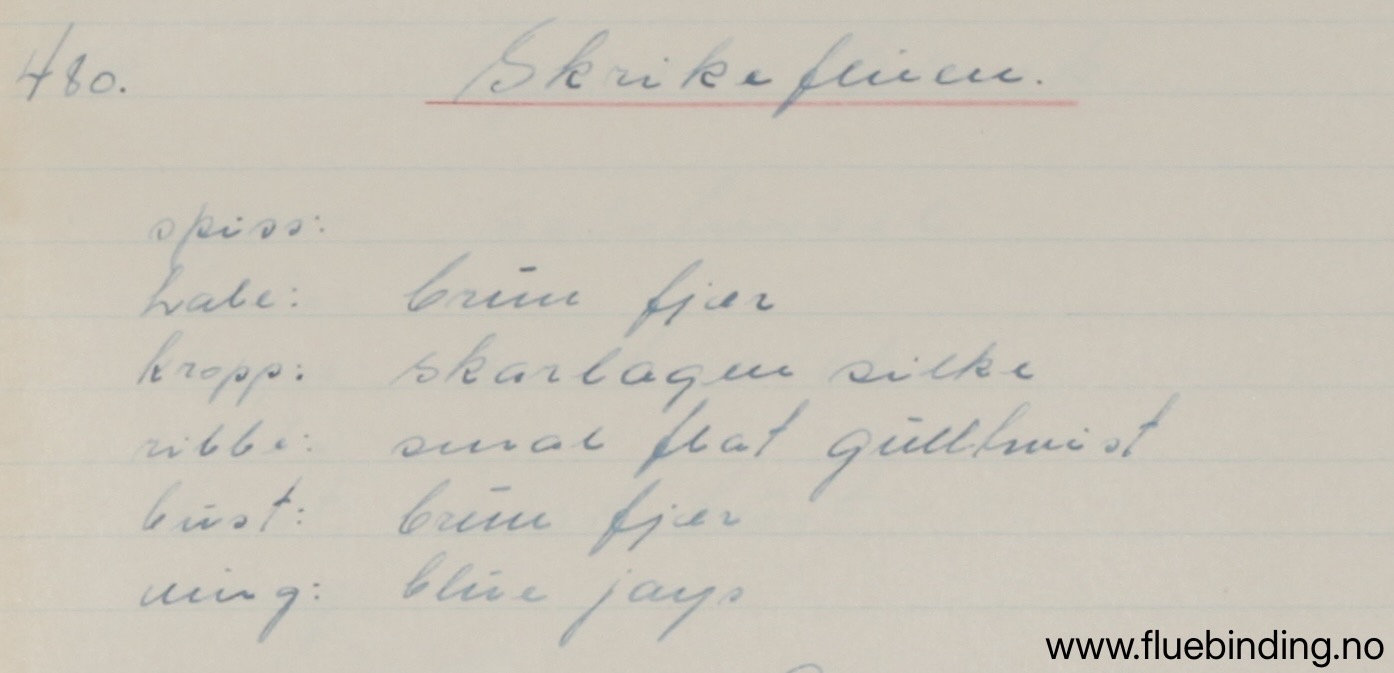 480. Skrikefluen.
spiss:
hale: brun fjær
kropp: skarlagen silke
ribbe: smal flat gulltwist
bust: brun fjær
ving: blue jays
www.fluebinding.no